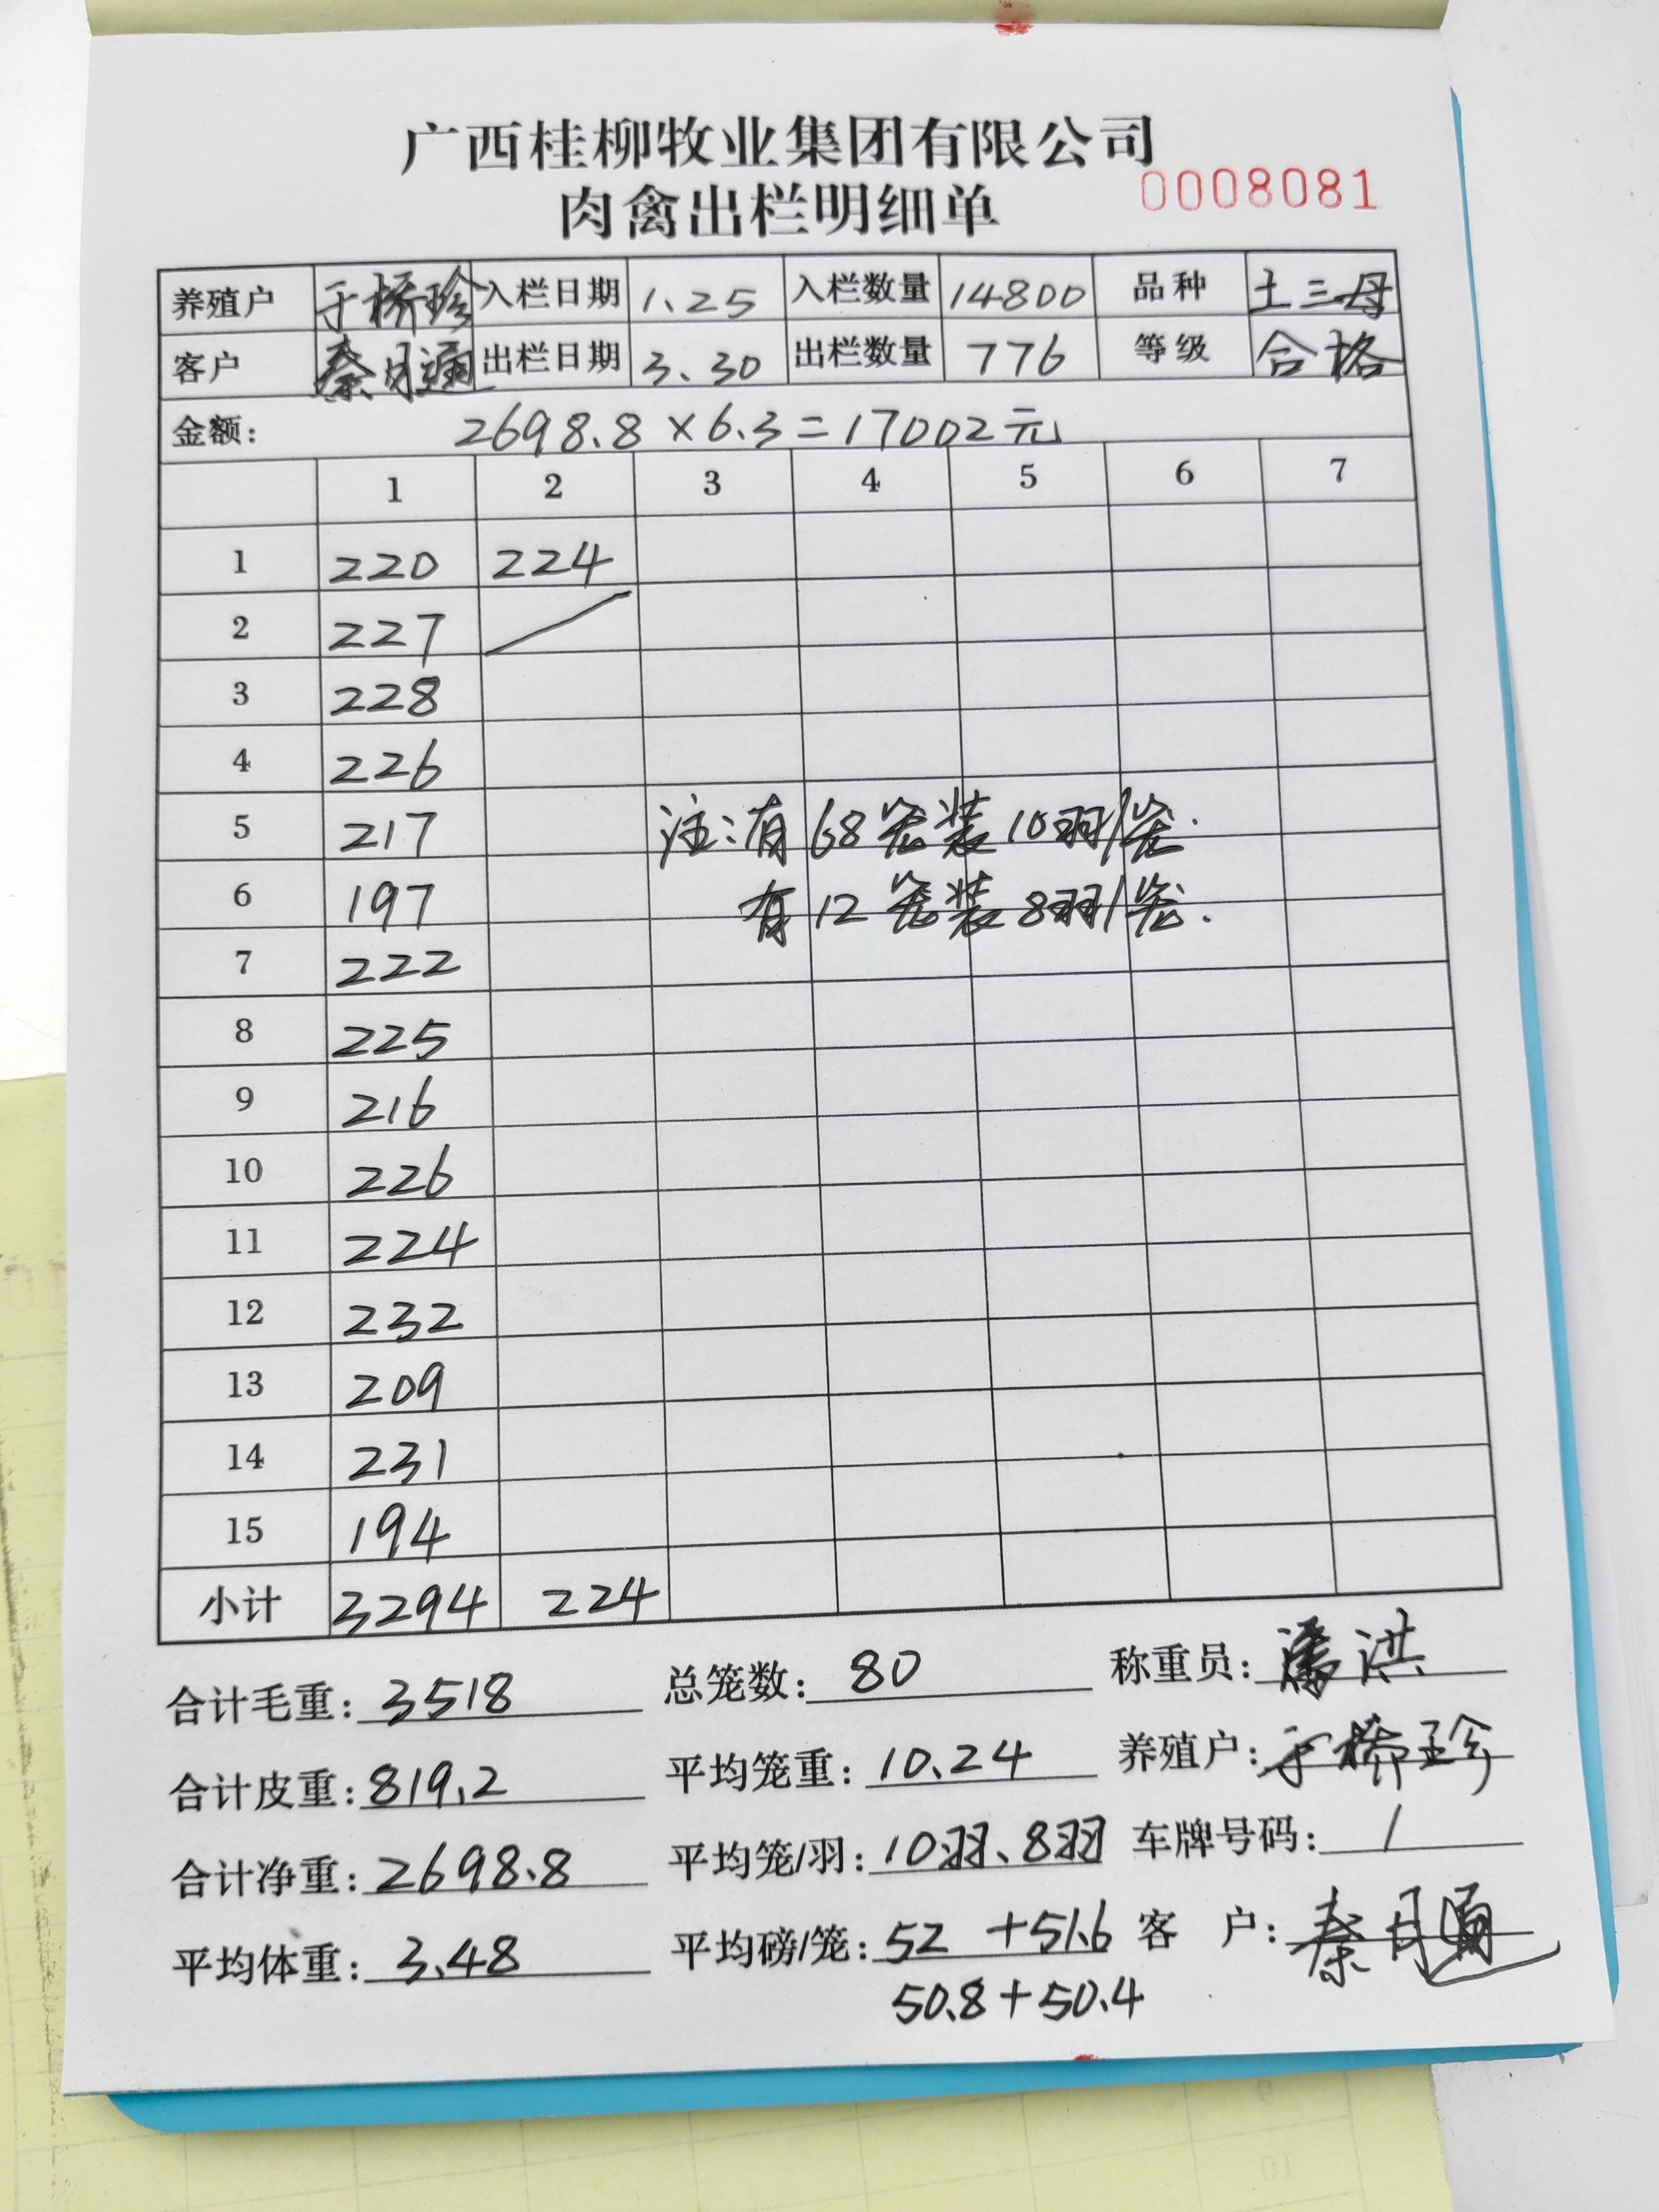 广西桂柳牧业集团有限公司
肉禽出栏明细单 0008081
养殖户 于桥珍 入栏日期 1.25 入栏数量 14800 品种 土三母
客户 秦月 出栏日期 3.30 出栏数量 776 等级 合格
金额: 2698.8×6.3=17002元
1 2 3 4 5 6 7
1 220 224
2 227
3 228
4 226
5 217 注:有68笼装10羽/笼.
6 197 有12笼装8羽/笼.
7 222
8 225
9 216
10 226
11 224
12 232
13 209
14 231
15 194
小计 3294 224
合计毛重: 3518 总笼数: 80 称重员: 潘洪
合计皮重: 819.2 平均笼重: 10.24 养殖户: 于桥珍
合计净重: 2698.8 平均笼/羽: 10羽、8羽 车牌号码: /
平均体重: 3.48 平均磅/笼: 52 +51.6 客 户: 秦月
50.8+50.4